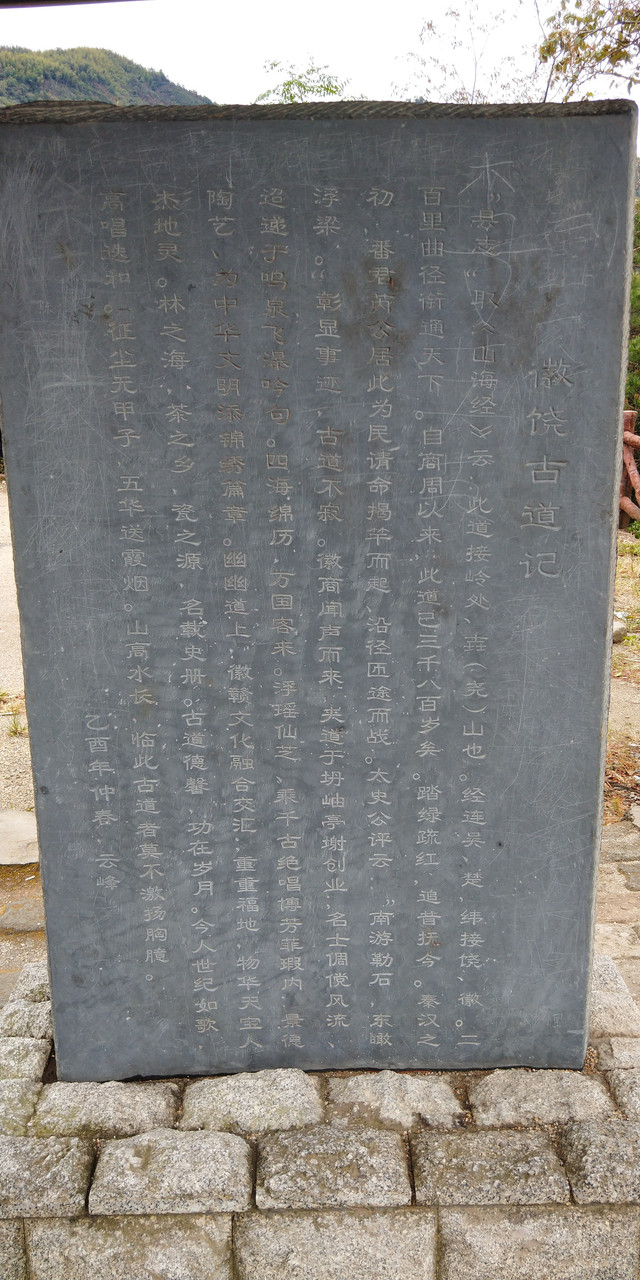 徽饶古道记
“丹志”取《山海经》云，此道接岭处、壵（尧）山也。经连吴、楚，纬接饶、徽。二
百里曲径衔通天下。自商周以来，此道已三千八百岁矣。踏绿疏红，追昔抚今。秦汉之
初，番君芮公居此为民请命揭竿而起、沿径匝途而战。太史公评云，“南游勒石，东瞰
浮梁。”彰显事迹，古道不寂。徽商闻声而来，夹道于坍岫亭榭创业，名士倜傥风流、
迢递于鸣泉飞瀑吟句。四海绵历，万国客来。浮瑶仙芝、乘千古绝唱博芳菲瑕内，景德
陶艺、为中华文明添锦绣篇章。幽幽道上，徽赣文化融合交汇；重重福地，物华天宝人
杰地灵。林之海、茶之乡，瓷之源，名载史册。古道德馨，功在岁月。今人世纪如歌，
高唱迭和。征尘无甲子，五华送霞烟。山高水长，临此古道者莫不激扬胸臆。
乙酉年仲春 云峰